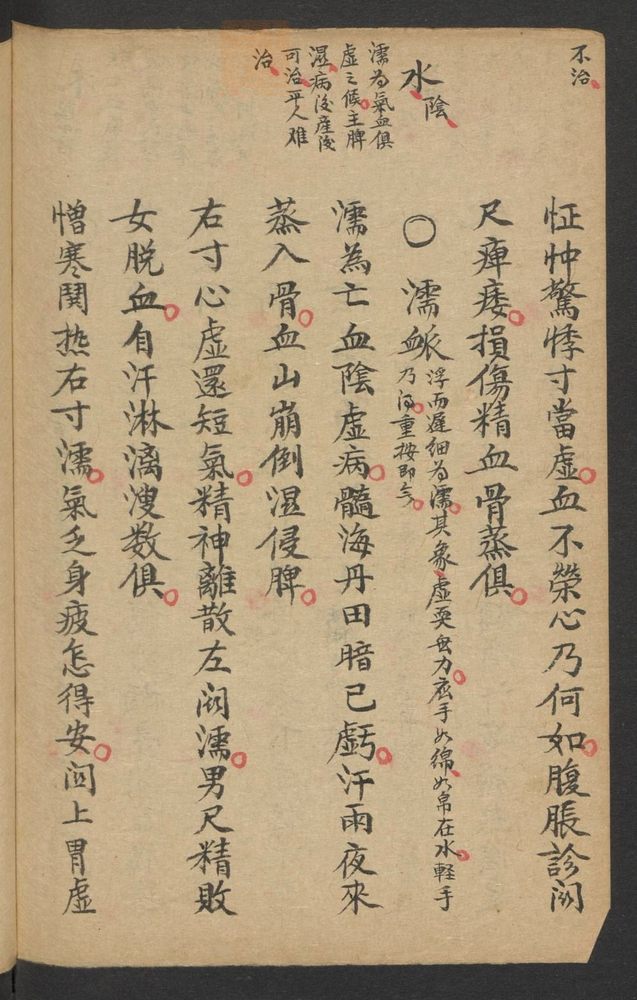 不治
怔忡驚悸寸當虛血不榮心乃何如腹脹診関
尺痺痿損傷精血骨蒸俱
水陰
濡為氣血俱
虛之候主脾
濕病後産後
可治平人难
治
〇濡脈
浮而遲細为濡其象虛耎无力𢈔手如綿如帛在水輕手
乃得重按即気
濡為亡血陰虛病髓海丹田暗已虧汗雨夜來
蒸入骨血山崩倒濕侵脾
右寸心虛還短氣精神離散左関濡男尺精敗
女脱血自汗淋漓溲数俱
憎寒関热右寸濡氣乏身疲怎得安関上胃虛